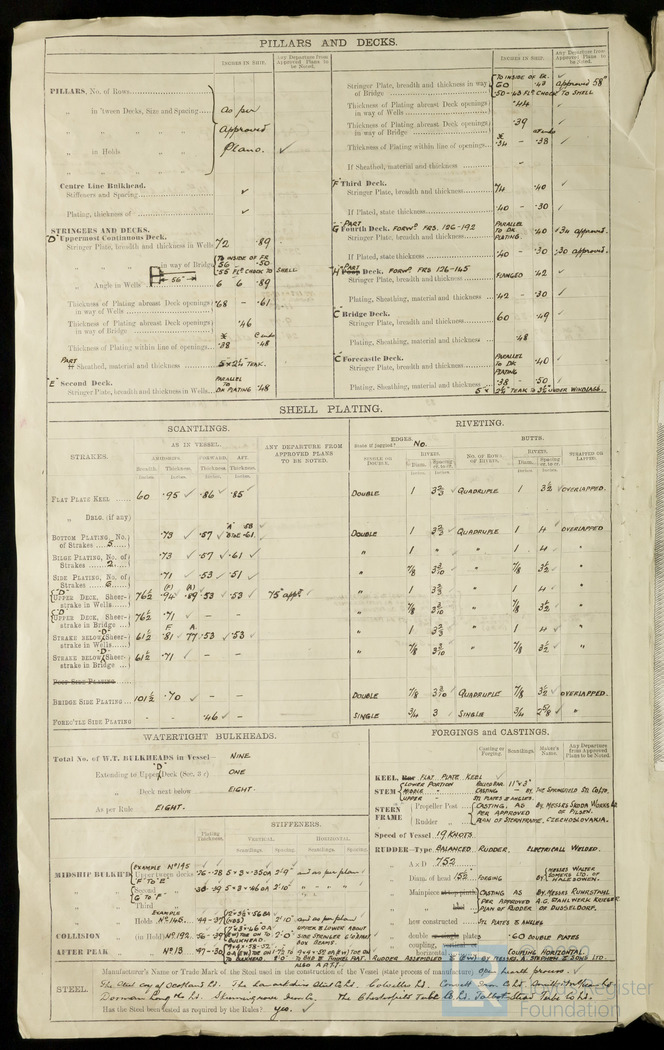 PILLARS AND DECKS.
INCHES IN SHIP.
Any Departure from Approved Plans to be Noted.
PILLARS, No. of Rows
" in 'tween Decks, Size and Spacing
as per
Approved
Plans. ✓
" in Holds " "
Centre Line Bulkhead.
Stiffeners and Spacing ✓
Plating, thickness of ✓
STRINGERS AND DECKS.
"D" Uppermost Continuous Deck.
Stringer Plate, breadth and thickness in Wells 72 .89
" " in way of Bridge TO INSIDE OF FR. 56 - .50
.55 FLG CHOCK TO SHELL
56"
Angle in Wells 6 6 .89
Thickness of Plating abreast Deck openings in way of Wells .68 - .61
Thickness of Plating abreast Deck openings in way of Bridge .46
Thickness of Plating within line of openings .38 .48
PART If Sheathed, material and thickness 5" x 2½" TEAK.
"E" Second Deck.
Stringer Plate, breadth and thickness in Wells PARALLEL TO DK PLATING .48
INCHES IN SHIP.
Any Departure from Approved Plans to be Noted.
Stringer Plate, breadth and thickness in way of Bridge TO INSIDE OF FR. 60 .43 Approved 58"
.50-.43 FLG CHOCK TO SHELL
Thickness of Plating abreast Deck openings in way of Wells .44
Thickness of Plating abreast Deck openings in way of Bridge .39
Thickness of Plating within line of openings .34 - .38 ✓
If Sheathed, material and thickness -
"F" Third Deck.
Stringer Plate, breadth and thickness 74 .40 ✓
If Plated, state thickness .40 - .30 ✓
PART
G Fourth Deck. FORWD FRS. 126-192
Stringer Plate, breadth and thickness PARALLEL TO DK PLATING .40 .34 approved.
If Plated, state thickness .40 - .30 .30 approved.
"H" PART Deck. FORWD FRS 126-145
Stringer Plate, breadth and thickness FLANGED .42 ✓
Plating, Sheathing, material and thickness .42 - .30 ✓
C Bridge Deck.
Stringer Plate, breadth and thickness 60 .49 ✓
Plating, Sheathing, material and thickness .48
"C" Forecastle Deck.
Stringer Plate, breadth and thickness PARALLEL TO DK PLATING .40 ✓
Plating, Sheathing, material and thickness .38 - .50 ✓
5 x 2½" TEAK TO 3½" UNDER WINDLASS.
SHELL PLATING.
SCANTLINGS.
RIVETING.
STRAKES.
AS IN VESSEL.
AMIDSHIPS. FORWARD. AFT.
Breadth. Thickness. Thickness. Thickness.
ANY DEPARTURE FROM APPROVED PLANS TO BE NOTED.
EDGES.
State if joggled? No.
SINGLE OR DOUBLE.
RIVETS.
Diam. Spacing cr. to cr.
BUTTS.
No. OF ROWS OF RIVETS.
RIVETS.
Diam. Spacing cr. to cr.
STRAPPED OR LAPPED.
FLAT PLATE KEEL 60 .95 ✓ .86 ✓ .85 ✓ DOUBLE 1 3¾ ✓ QUADRUPLE 1 3½ ✓ OVERLAPPED.
" DBLG. (if any)
BOTTOM PLATING, No. of Strakes 5 .73 ✓ .57 ✓ DOUBLE 1 3¾ ✓ QUADRUPLE 1 4 ✓ OVERLAPPED
BILGE PLATING, No. of Strakes 2 .73 ✓ .57 ✓ .61 ✓ " 1 " " 1 4 ✓ "
SIDE PLATING, No. of Strakes 6 .71 ✓ .53 ✓ .51 ✓ " ⅞ " ⅞ 3½ ✓ "
"D" UPPER DECK, Sheer-strake in Wells 76½ (F) .94 (A) .89 .53 ✓ .53 ✓ 75" appd. ✓ " 1 3¾ " 1 4 ✓ "
"D" UPPER DECK, Sheer-strake in Bridge 76½ .71 ✓ - - " ⅞ " ⅞ 3½ ✓ "
STRAKE BELOW "D" Sheer-strake in Wells 61½ F .81 A .77 .53 ✓ .53 ✓ " 1 3¾ " 1 4 ✓ "
STRAKE BELOW "D" Sheer-strake in Bridge 61½ .71 ✓ - - " ⅞ " ⅞ 3½ ✓ "
POOP SIDE PLATING
BRIDGE SIDE PLATING 101½ .70 ✓ - - DOUBLE ⅞ ✓ QUADRUPLE ⅞ 3½ ✓ OVERLAPPED.
FOREC'TLE SIDE PLATING - - .46 ✓ - SINGLE ¾ 3 ✓ SINGLE ¾ 2⅝ ✓ "
WATERTIGHT BULKHEADS.
Total No. of W.T. BULKHEADS in Vessel— NINE
Extending to Upper "D" Deck (Sec. 3 c) ONE
" Deck next below EIGHT.
As per Rule EIGHT.
STIFFENERS.
Plating Thickness.
VERTICAL. HORIZONTAL.
Scantlings. Spacing. Scantlings. Spacing.
MIDSHIP BULKH'D EXAMPLE No 195 Upper 'tween decks "F" TO "E" .26-.28 5 x 3 x .35 OA 2'9" and as per plan
Second " "G" TO "F" 5 x 3 x .46 OA 2'10" " "
Third "
EXAMPLE Holds No 145. 2'10" and as per plan
COLLISION (in Hold) No 192. .56-.39 2'0"
AFTER PEAK " No 13
FORGINGS and CASTINGS.
Casting or Forging. Scantlings. Maker's Name. Any Departure from Approved Plans to be Noted.
KEEL, Bar FLAT PLATE KEEL ✓
STEM LOWER PORTION ROLLED BAR 11" x 3"
MIDDLE " CASTING - BY THE SPRINGFIELD STL CO LTD.
UPPER " STL PLATES & ANGLES.
STERN FRAME Propeller Post CASTING, AS PER APPROVED PLAN OF STERNFRAME, BY MESSRS SKODA WORKS LTD OF PILSEN. CZECHOSLOVAKIA.
Rudder "
Speed of Vessel 19 KNOTS.
RUDDER—Type BALANCED RUDDER. ELECTRICALLY WELDED.
" A x D 752
" Diam. of head 15½" FORGING MESSRS WALTER SOMERS LTD. OF HALESOWEN.
" Mainpiece at top pintle CASTING AS PER APPROVED PLAN OF RUDDER BY MESSRS RUHRSTAHL A.G. STAHLWERK KRIEGER OF DUSSELDORF.
" " heel "
" how constructed STL PLATES & ANGLES
" double or single plates .60 DOUBLE PLATES
" coupling, vertical or horizontal COUPLING HORIZONTAL.
RUDDER ASSEMBLED & (EW) BY MESSRS A. STEPHEN & SONS LTD.
STEEL.
Manufacturer's Name or Trade Mark of the Steel used in the construction of the Vessel (state process of manufacture) Open hearth process. ✓
The Steel Coy of Scotland Ld. The Lanarkshire Steel Co Ld. Colvilles Ld. Consett Iron Co Ld.
Dorman Long & Co Ld. Skinningrove Iron Co. The Chesterfield Tube Co Ld. Talbot Stead Tube Co Ld.
Has the Steel been tested as required by the Rules? Yes. ✓
Lloyd's Register
Foundation